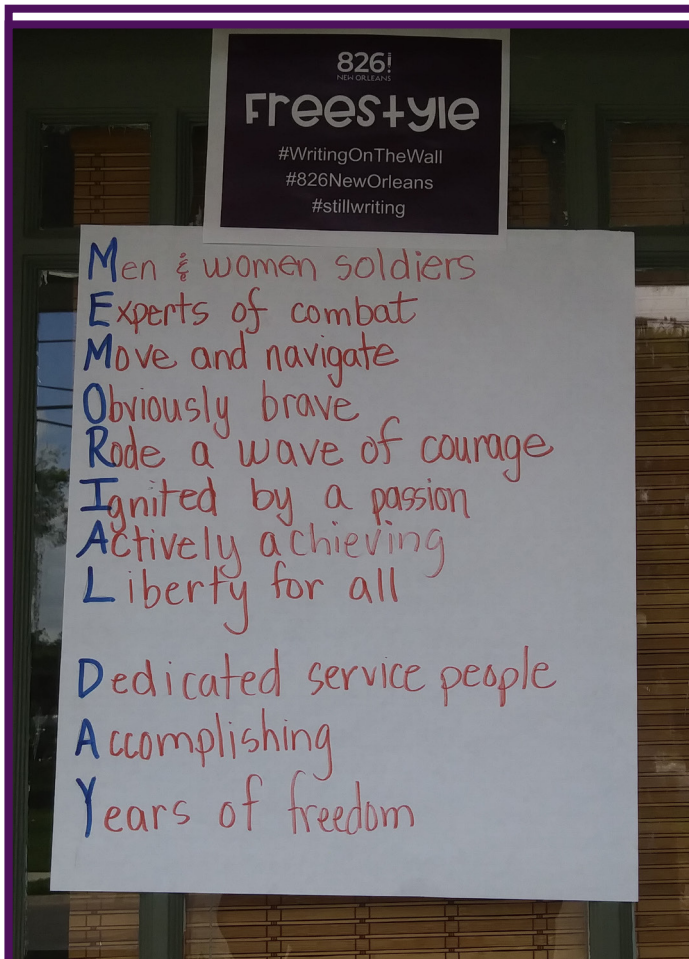 826!
NEW ORLEANS
Freestyle
#WritingOnTheWall
#826NewOrleans
#stillwriting
Men & women soldiers
Experts of combat
Move and navigate
Obviously brave
Rode a wave of courage
Ignited by a passion
Actively achieving
Liberty for all
Dedicated service people
Accomplishing
Years of freedom